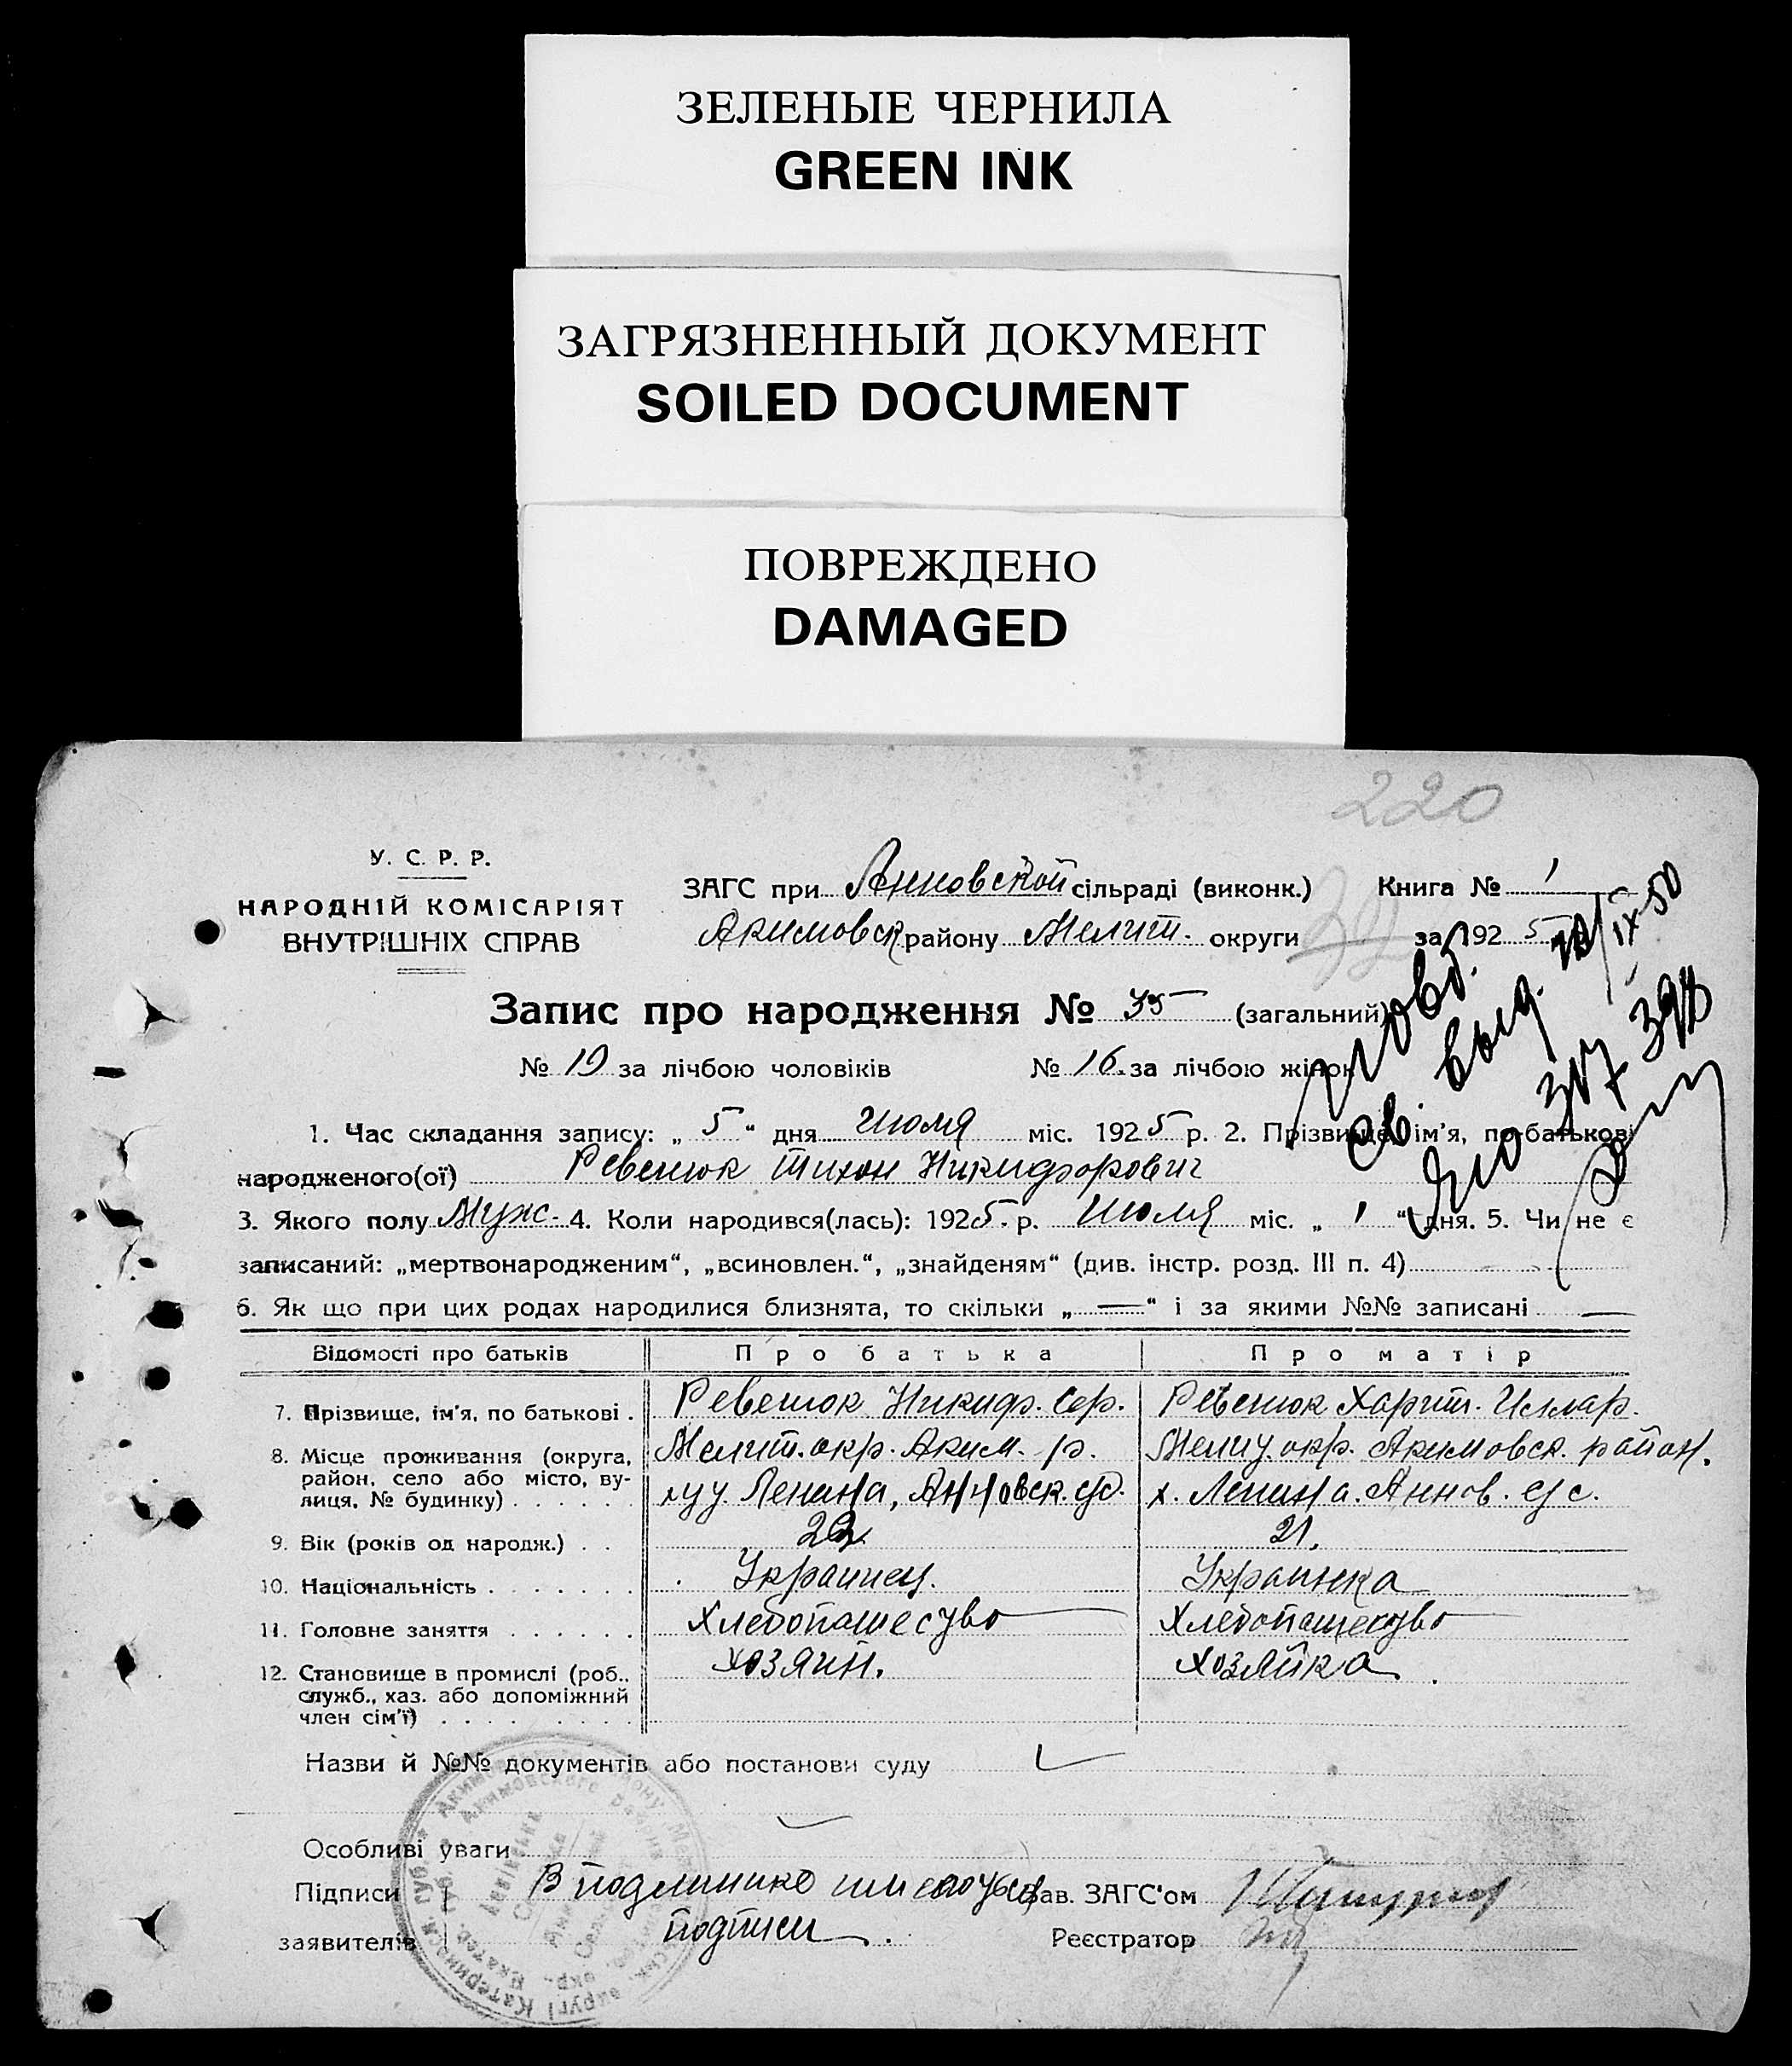 ЗЕЛЕНЫЕ ЧЕРНИЛА
GREEN INK
ЗАГРЯЗНЕННЫЙ ДОКУМЕНТ
SOILED DOCUMENT
ПОВРЕЖДЕНО
DAMAGED
220
У. С. Р. Р.
НАРОДНІЙ КОМІСАРІЯТ
ВНУТРІШНІХ СПРАВ
ЗАГС при Анновской сільраді (виконк.) Книга № 1
Акимовск району Мелит. округи за 1925
Запис про народження № 35 (загальний)
№ 19 за лічбою чоловіків № 16. за лічбою жінок
св. выд. IX-50
1. Час складання запису: „ 5 “ дня Июля міс. 1925 р. 2. Прізвище, ім'я, по-батькові
народженого(ої) Ревенюк Тихон Никидзорович
3. Якого полу Муж. 4. Коли народився(лась): 1925. р. Июля міс. „ 1 “ дня. 5. Чи не є
записаний: „мертвонародженим“, „всиновлен.“, „знайденям“ (див. інстр. розд. III п. 4)
6. Як що при цих родах народилися близнята, то скільки „ — “ і за якими №№ записані —
Відомості про батьків Про батька Про матір
7. Прізвище, ім'я, по батькові . Ревенюк Никидз. Сер. Ревенюк Харит. Иллар.
8. Місце проживання (округа, Мелит. окр. Аким. р. Мелит. окр. Акимовск. район.
район, село або місто, ву-
лиця, № будинку) . . . . . . Ленина, Анновск. с/с. х. Ленина. Аннов. с/с.
9. Вік (років од народж.) . . 22 21.
10. Національність . . . . . . . Украинец. Украинка
11. Головне заняття . . . . . . Хлебопашество Хлебопашество
12. Становище в промислі (роб., хозяин. хозяйка
служб., хаз. або допоміжний
член сім'ї) . . . . . . . .
Назви й №№ документів або постанови суду
Особливі уваги
Підписи В подлинике имеються Зав. ЗАГС'ом
заявителів подписи. Реєстратор